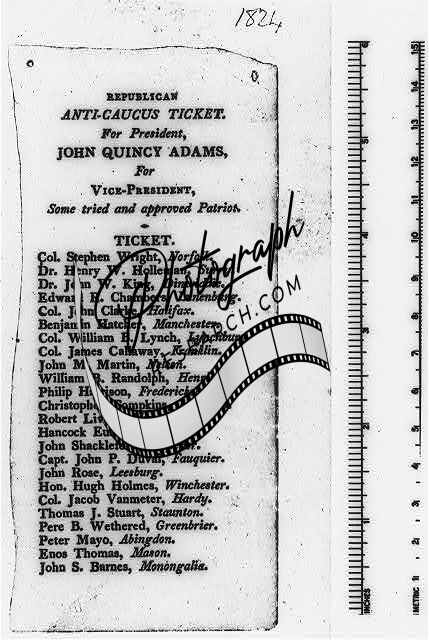 1824
REPUBLICAN
ANTI-CAUCUS TICKET.
For President,
JOHN QUINCY ADAMS,
For
VICE-PRESIDENT,
Some tried and approved Patriot.
TICKET.
Col. Stephen Wright, Norfolk.
Dr. Henry
Dr. John W. King,
Edward R. Chambers, Lunenburg.
Col. John Clarke, Halifax.
Benjamin Hatcher, Manchester.
Col. William B. Lynch, Lynchburg.
Col. James Callaway, Franklin.
John M. Martin, Nelson.
William B. Randolph,
Philip Harrison,
Christopher Tompkins,
Robert
Hancock
John
Capt. John P. Duval, Fauquier.
John Rose, Leesburg.
Hon. Hugh Holmes, Winchester.
Col. Jacob Vanmeter, Hardy.
Thomas J. Stuart, Staunton.
Pere B. Wethered, Greenbrier.
Peter Mayo, Abingdon.
Enos Thomas, Mason.
John S. Barnes, Monongalia.
Photograph
.COM
INCHES
1
2
3
4
5
6
METRIC 1
2
3
4
5
6
7
8
9
10
11
12
13
14
15